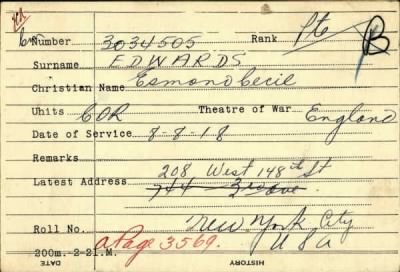 Number 3034505 Rank Pte B
Surname EDWARDS
Christian Name Esmond Cecil
Units COR Theatre of War England
Date of Service 8-8-18
Remarks
208 West 148th St
Latest Address 744 - 3rd Ave
New York City
Roll No. USA
a Page 3569.
200m.-2-21.M.
DATE HISTORY